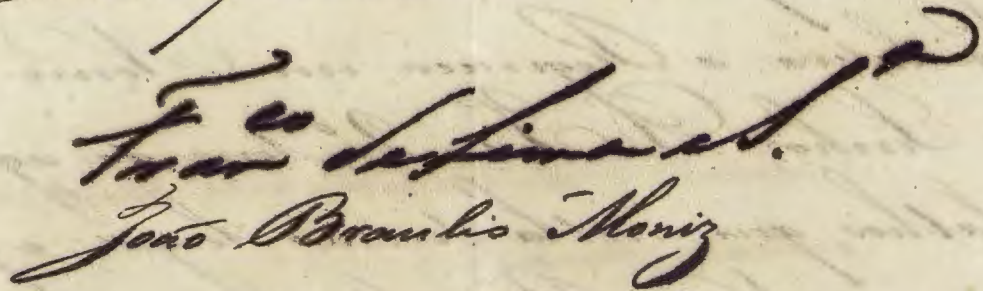 Fran.co de Lima e S.a
João Braulio Moniz